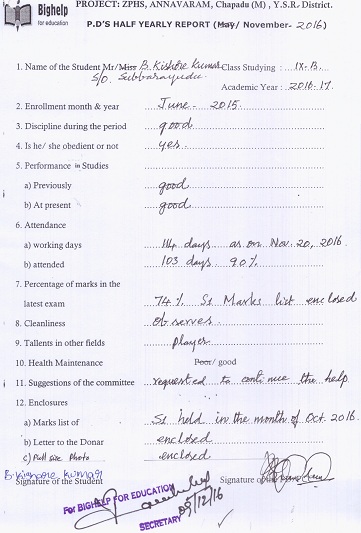 Bighelp
for education
PROJECT: ZPHS, ANNAVARAM, Chapadu (M) , Y.S.R. District.
P.D'S HALF YEARLY REPORT (May/ November- 2016)
1. Name of the Student Mr/Miss B. Kishore Kumar Class Studying : IX-B
S/O. Subbarayudu. Academic Year : 2016-17.
2. Enrollment month & year June - 2015.
3. Discipline during the period good
4. Is he/ she obedient or not yes.
5. Performance in Studies
a) Previously good
b) At present good
6. Attendance
a) working days 114 days as on Nov. 20, 2016
b) attended 103 days 90%
7. Percentage of marks in the
latest exam 74% S1 Marks list enclosed
8. Cleanliness observes.
9. Tallents in other fields player
10. Health Maintenance Poor/ good
11. Suggestions of the committee requested to continue the help
12. Enclosures
a) Marks list of S1 held in the month of Oct 2016.
b) Letter to the Donar enclosed
c) Full size Photo enclosed
B. Kishore Kumar
Signature of the Student Signature of the
For BIGHELP FOR EDUCATION
SECRETARY
05/12/16